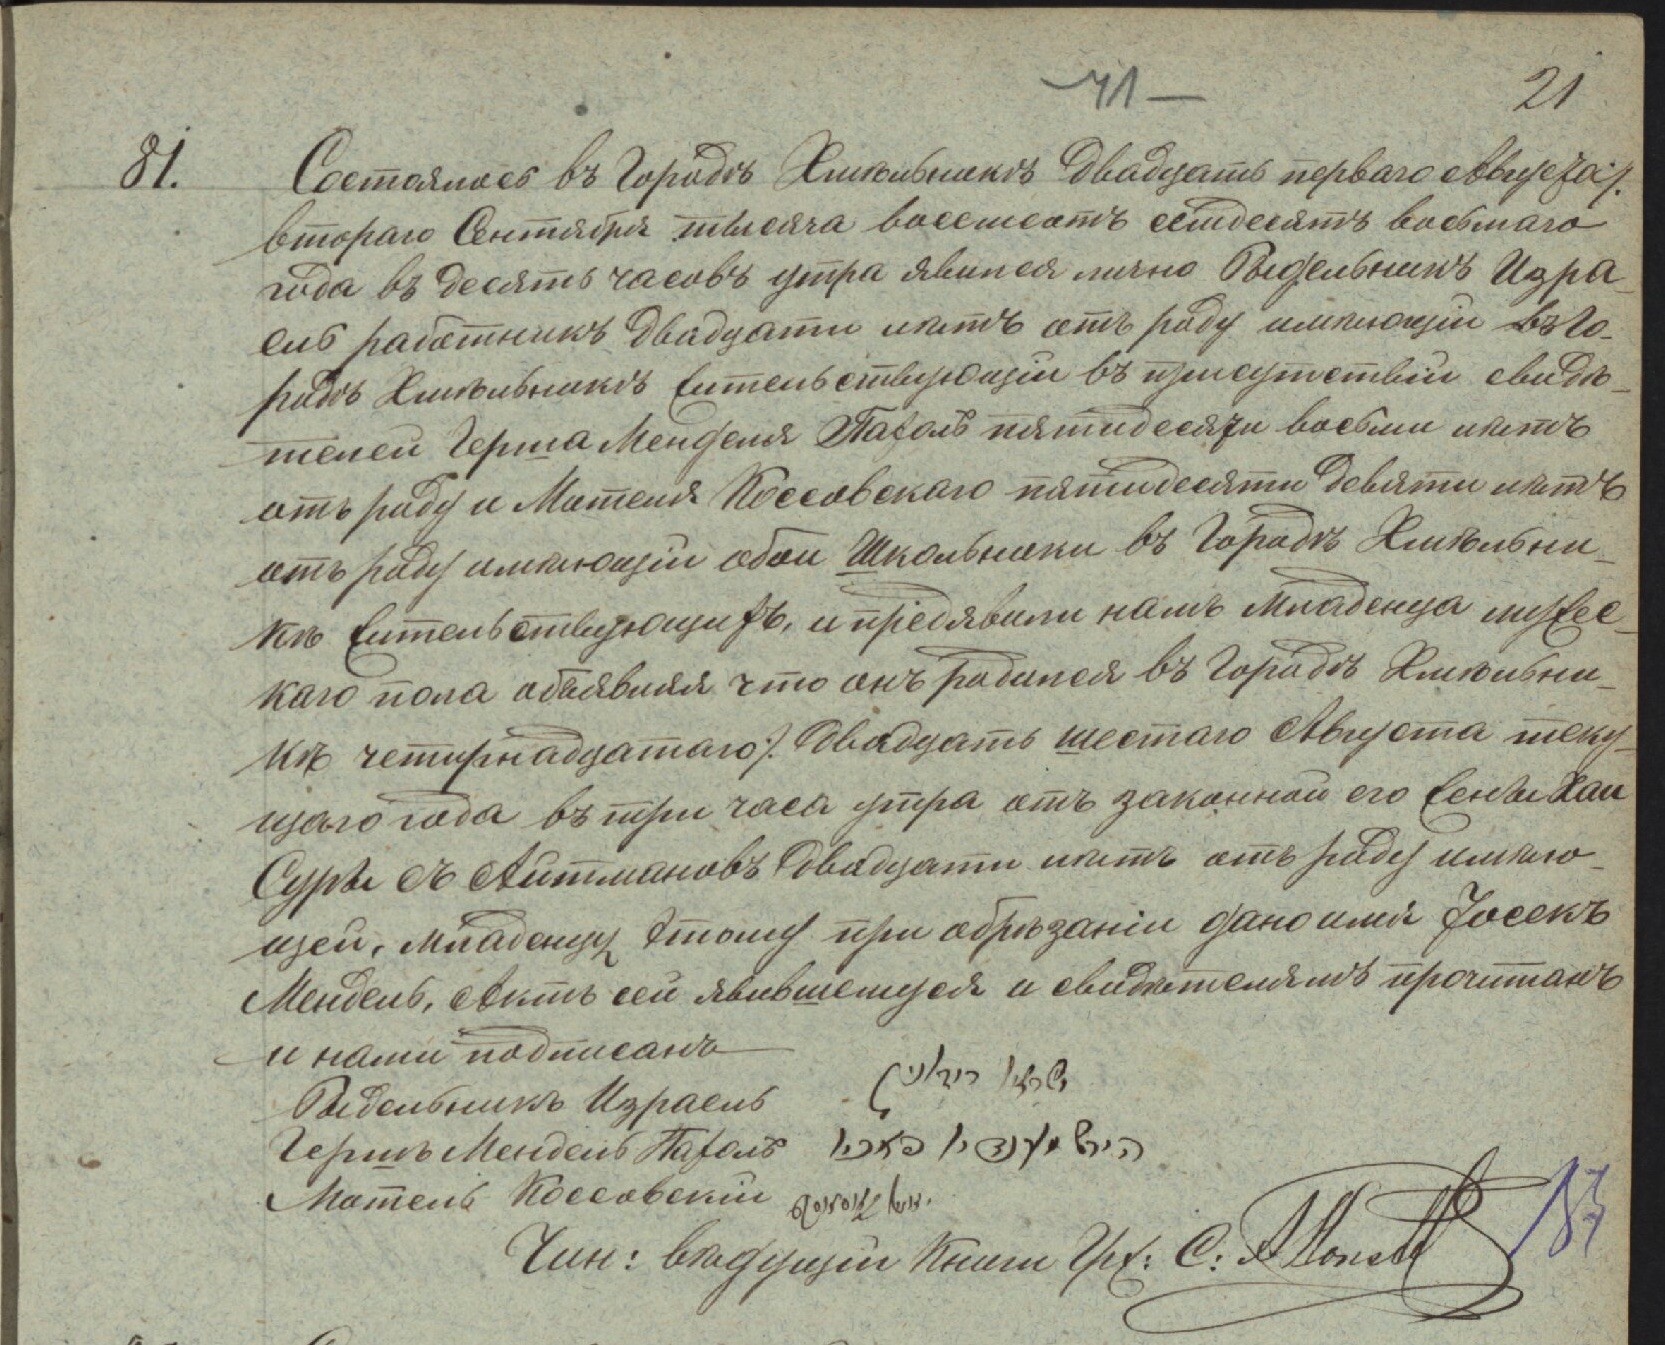 41 —
21
81. Состоялось въ Городѣ Хмѣльникѣ Двадцать перваго Августа /
втораго Сентября тысяча восемсотъ семдесятъ восьмаго
года въ десять часовъ утра явился лично Рыдельникъ Изра-
ель работникъ Двадцати лѣтъ отъ роду имѣющій въ Го-
родѣ Хмѣльникѣ жительствующій въ присутствіи свидѣ-
телей Герша Менделя Пахоль пятидесяти восьми лѣтъ
отъ роду и Мотеля Коссовскаго пятидесяти Девяти лѣтъ
отъ роду имѣющій обои Школьники въ Городѣ Хмѣльни-
кѣ жительствующихъ, и предявили намъ Младенца мужес-
каго пола объявляя что онъ родился въ Городѣ Хмѣльни-
кѣ четырнадцатаго /. Двадцать шестаго Августа теку-
щаго года въ три часа утра отъ законной его жены Хаи
Суры съ Айтмановъ Двадцати лѣтъ отъ роду имѣю-
щей, Младенцу этому при обрѣзаніи дано имя Іосекъ
Мендель, Актъ сей явившемуся и свидѣтелямъ прочитанъ
и нами подписанъ
Рыдельникъ Израель
Гершъ Мендель Пахоль הירש מענדיל פאכיל
Мотель Коссовскій
Чин: ведущій Книги Гр: С: